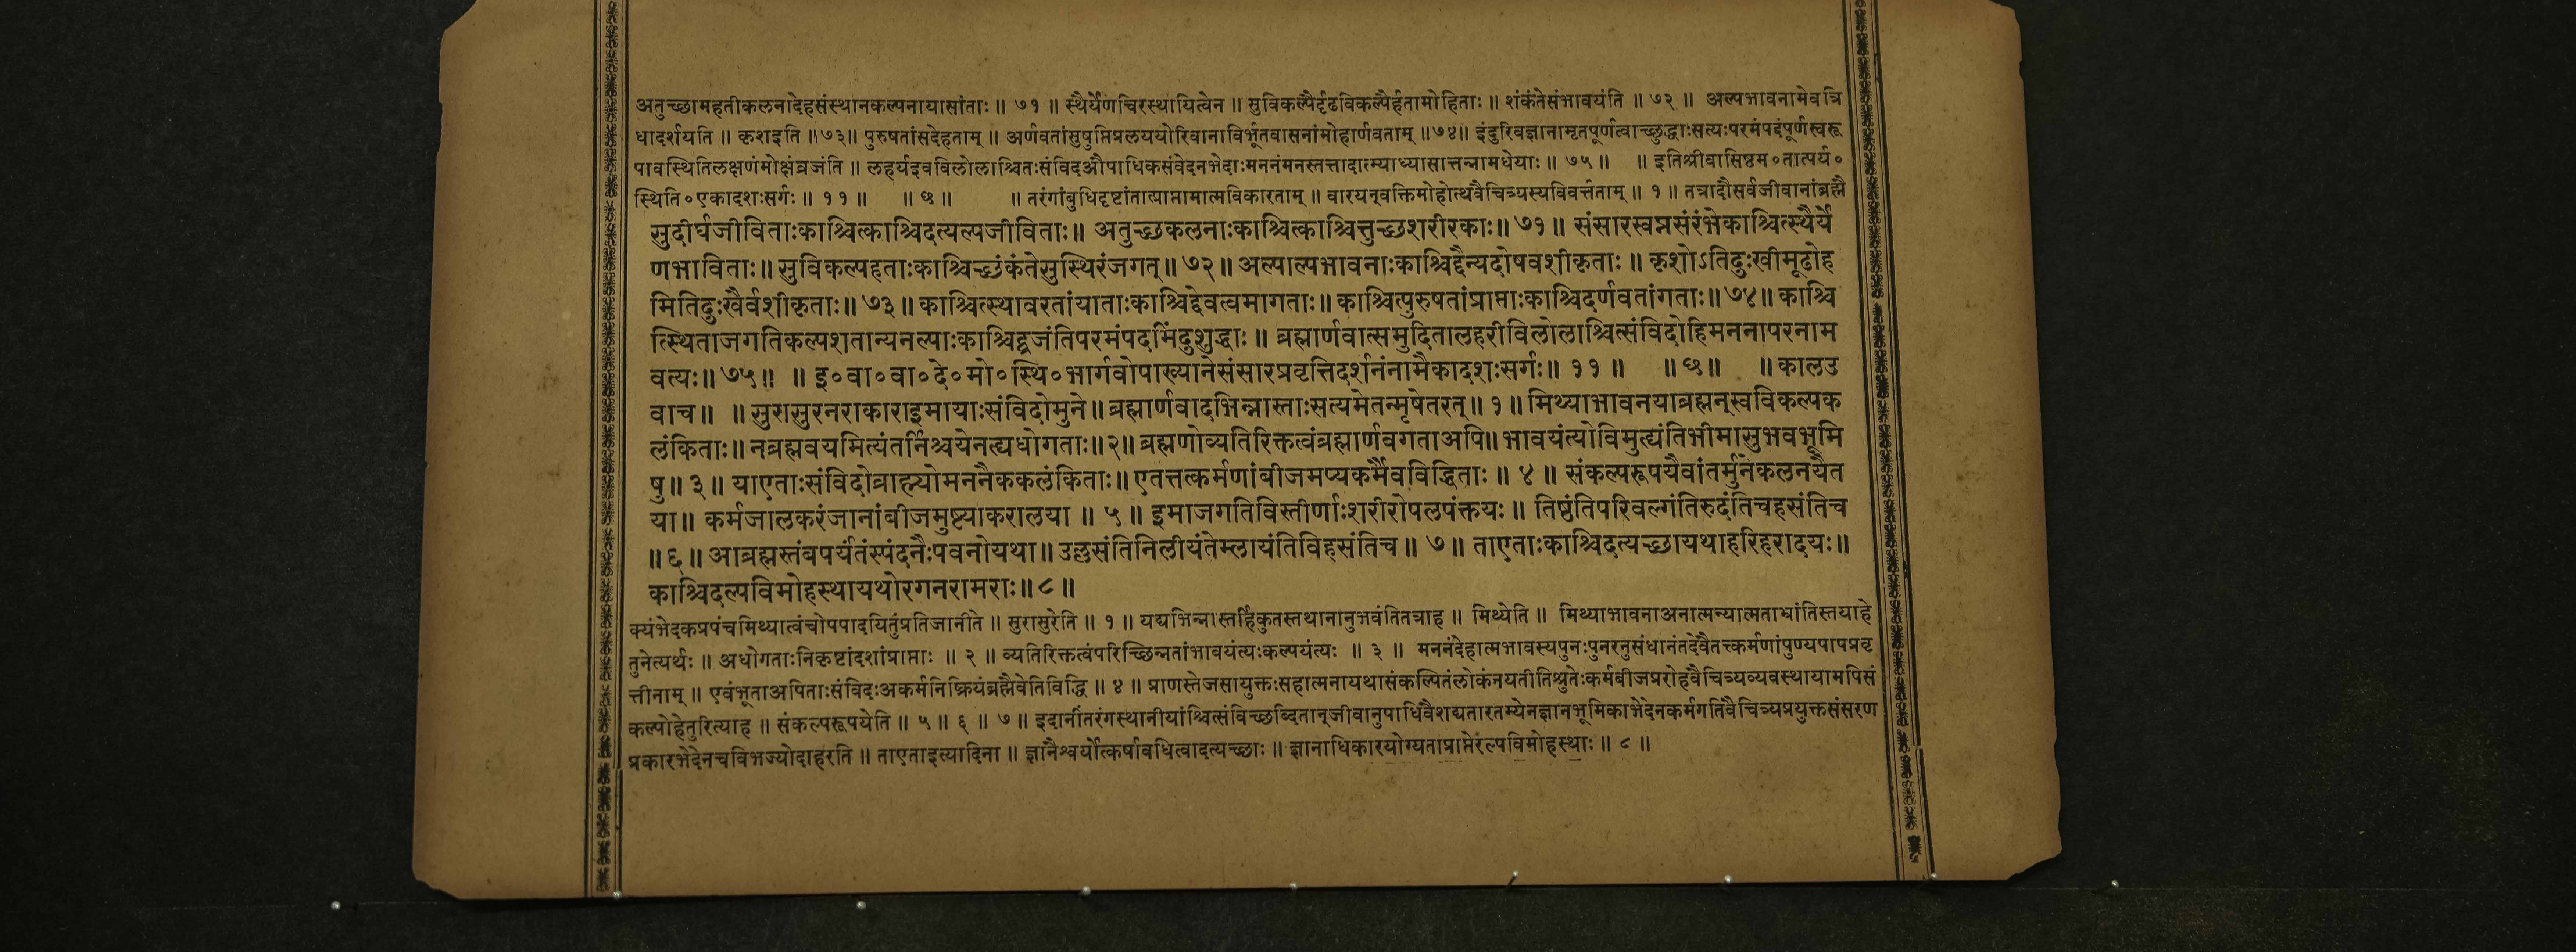 अतुच्छामहतीकलनादेहसंस्थानकल्पनायासांताः ॥ ७१ ॥ स्थैर्येणचिरस्थायित्वेन ॥ सुविकल्पैर्दृढविकल्पैर्हतामोहिताः ॥ शंकंतेसंभावयंति ॥ ७२ ॥ अल्पभावनामेवत्रि
धादर्शयति ॥ कृशइति ॥७३॥ पुरुषतांसदेहताम् ॥ अर्णवतांसुषुप्तिप्रलययोरिवानाविर्भूतवासनांमोहार्णवताम् ॥७४॥ इंदुरिवज्ञानामृतपूर्णत्वाच्छुद्धाःसत्यःपरमंपदंपूर्णस्वरू
पावस्थितिलक्षणंमोक्षंव्रजंति ॥ लहर्यइवविलोलाश्चितःसंविदऔपाधिकसंवेदनभेदाःमननंमनस्तत्तादात्म्याध्यासात्तन्नामधेयाः ॥ ७५ ॥ ॥ इतिश्रीवासिष्ठम॰तात्पर्य॰
स्थिति॰एकादशःसर्गः ॥ ११ ॥ ॥ ७ ॥ ॥ तरंगांबुधिदृष्टांतात्प्राप्तामात्मविकारताम् ॥ वारयन्वक्तिमोहोत्थवैचित्र्यस्यविवर्त्तताम् ॥ १ ॥ तत्रादौसर्वजीवानांब्रह्मै
सुदीर्घजीविताःकाश्चित्काश्चिदत्यल्पजीविताः॥ अतुच्छकलनाःकाश्चित्काश्चित्तुच्छशरीरकाः॥ ७१॥ संसारस्वप्नसंरंभेकाश्चित्स्थैर्ये
णभाविताः॥ सुविकल्पहताःकाश्चिच्छंकंतेसुस्थिरंजगत्॥ ७२॥ अल्पाल्पभावनाःकाश्चिद्दैन्यदोषवशीकृताः ॥ कृशोऽतिदुःखीमूढोह
मितिदुःखैर्वशीकृताः॥ ७३॥ काश्चित्स्थावरतांयाताःकाश्चिद्देवत्वमागताः॥ काश्चित्पुरुषतांप्राप्ताःकाश्चिदर्णवतांगताः॥ ७४॥ काश्चि
त्स्थिताजगतिकल्पशतान्यनल्पाःकाश्चिद्व्रजंतिपरमंपदमिंदुशुद्धाः ॥ ब्रह्मार्णवात्समुदितालहरीविलोलाश्चित्संविदोहिमननापरनाम
वत्यः॥ ७५॥ ॥ इ॰वा॰वा॰दे॰मो॰स्थि॰भार्गवोपाख्यानेसंसारप्रवृत्तिदर्शनंनामैकादशःसर्गः॥ ११ ॥ ॥ ७॥ ॥ कालउ
वाच॥ ॥ सुरासुरनराकाराइमायाःसंविदोमुने॥ ब्रह्मार्णवादभिन्नास्ताःसत्यमेतन्मृषेतरत्॥ १॥ मिथ्याभावनयाब्रह्मन्स्वविकल्पक
लंकिताः॥ नब्रह्मवयमित्यंतर्निश्चयेनत्द्यधोगताः॥२॥ ब्रह्मणोव्यतिरिक्तत्वंब्रह्मार्णवगताअपि॥ भावयंत्योविमुत्द्यंतिभीमासुभवभूमि
षु॥ ३॥ याएताःसंविदोब्राह्म्योमननैककलंकिताः॥ एतत्तत्कर्मणांबीजमप्यकर्मैवविद्धिताः ॥ ४ ॥ संकल्परूपयैवांतर्मुनेकलनयैत
या॥ कर्मजालकरंजानांबीजमुष्ट्याकरालया ॥ ५ ॥ इमाजगतिविस्तीर्णाःशरीरोपलपंक्तयः॥ तिष्ठंतिपरिवल्गंतिरुदंतिचहसंतिच
॥ ६॥ आब्रह्मस्तंबपर्यंतंस्पंदनैःपवनोयथा॥ उल्लसंतिनिलीयंतेम्लायंतिविहसंतिच॥ ७॥ ताएताःकाश्चिदत्यच्छायथाहरिहरादयः॥
काश्चिदल्पविमोहस्थायथोरगनरामराः॥ ८॥
क्यंभेदकप्रपंचमिथ्यात्वंचोपपादयितुंप्रतिजानीते ॥ सुरासुरेति ॥ १ ॥ यद्यभिन्नास्तर्हिकुतस्तथानानुभवंतितत्राह ॥ मिथ्येति ॥ मिथ्याभावनाअनात्मन्यात्मताभ्रांतिस्तयाहे
तुनेत्यर्थः ॥ अधोगताःनिकृष्टांदशांप्राप्ताः ॥ २ ॥ व्यतिरिक्तत्वंपरिच्छिन्नतांभावयंत्यःकल्पयंत्यः ॥ ३ ॥ मननंदेहात्मभावस्यपुनःपुनरनुसंधानंतदेवैतत्कर्मणांपुण्यपापप्रवृ
त्तीनाम् ॥ एवंभूताअपिताःसंविदःअकर्मनिष्क्रियंब्रह्मैवेतिविद्धि ॥ ४ ॥ प्राणस्तेजसायुक्तःसहात्मनायथासंकल्पितंलोकंनयतीतिश्रुतेःकर्मबीजप्ररोहवैचित्र्यव्यवस्थायामपिसं
कल्पोहेतुरित्याह ॥ संकल्परूपयेति ॥ ५ ॥ ६ ॥ ७ ॥ इदानींतरंगस्थानीयांश्चित्संविच्छब्दितान्जीवानुपाधिवैशद्यतारतम्येनज्ञानभूमिकाभेदेनकर्मगतिवैचित्र्यप्रयुक्तसंसरण
प्रकारभेदेनचविभज्योदाहरति ॥ ताएताइत्यादिना ॥ ज्ञानैश्वर्योत्कर्षावधित्वादत्यच्छाः ॥ ज्ञानाधिकारयोग्यताप्राप्तेरल्पविमोहस्थाः ॥ ८ ॥